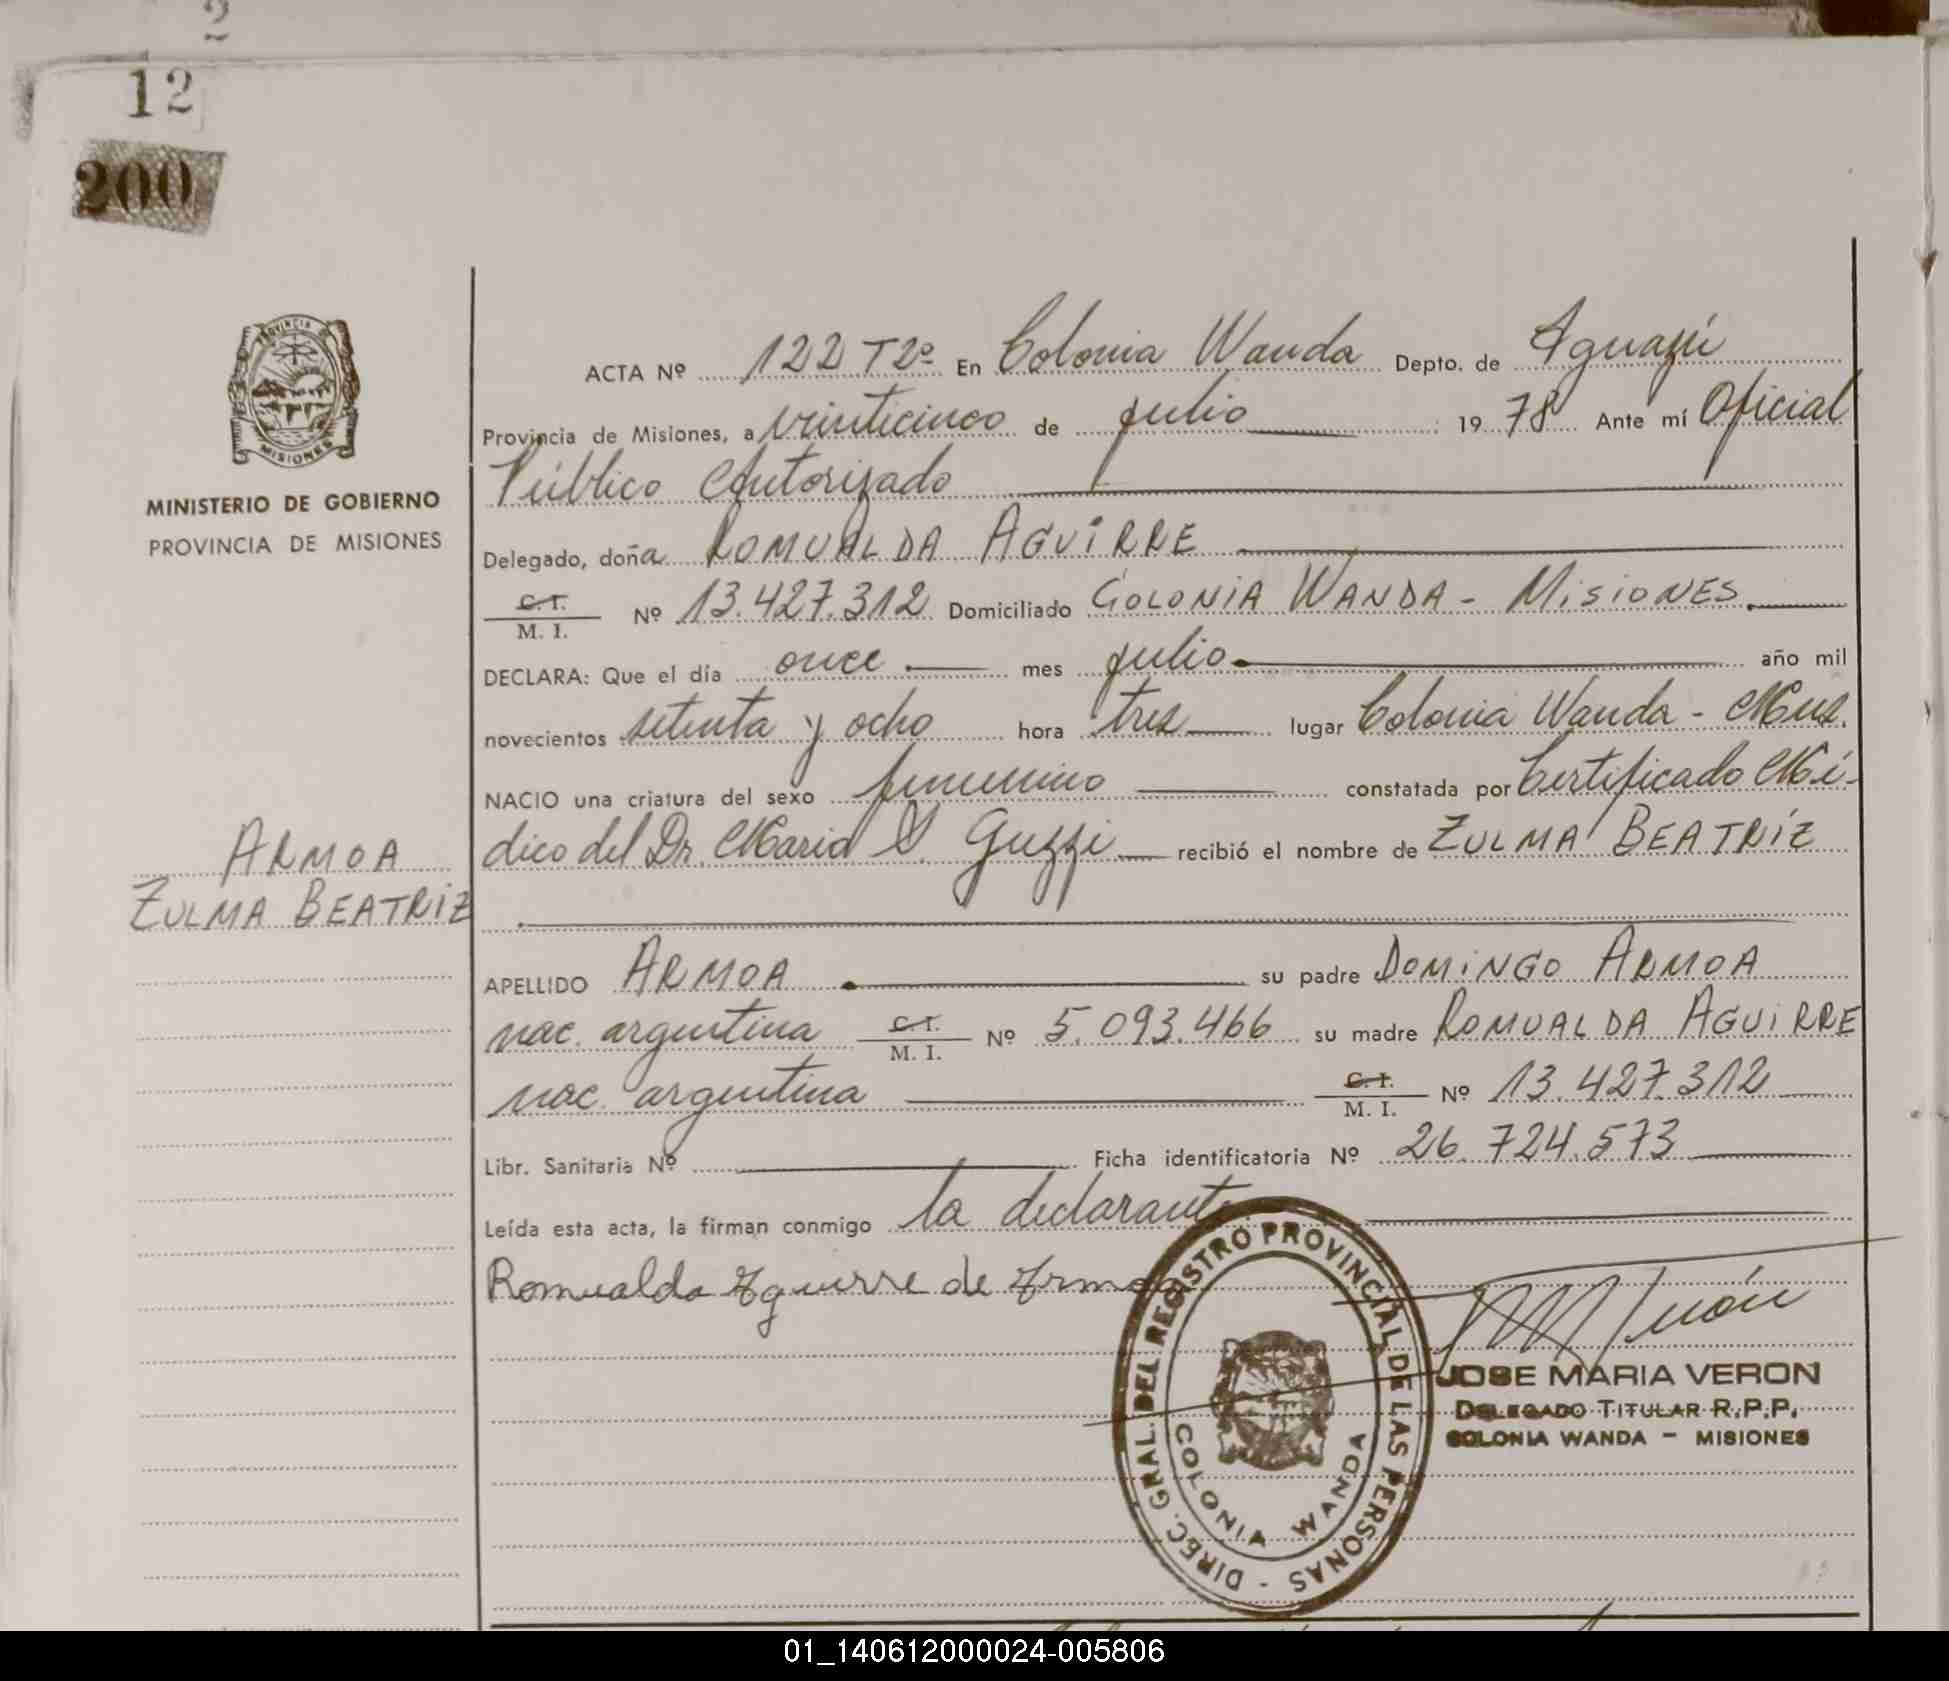 2
12
200
PROVINCIA D
MISIONES
MINISTERIO DE GOBIERNO
PROVINCIA DE MISIONES
ARMOA
ZULMA BEATRIZ
ACTA Nº 122 T2º En Colonia Wanda Depto. de Iguazú
Provincia de Misiones, a veinticinco de julio 19 78 Ante mí Oficial
Público Autorizado
Delegado, doña ROMUALDA AGUIRRE
C.I. / M. I. Nº 13.427.312 Domiciliado COLONIA WANDA - MISIONES.
DECLARA: Que el día once mes julio año mil
novecientos setenta y ocho hora tres lugar Colonia Wanda - Mns.
NACIO una criatura del sexo femenino constatada por Certificado Mé-
dico del Dr. Mario S. Guzzi recibió el nombre de ZULMA BEATRIZ
APELLIDO ARMOA su padre DOMINGO ARMOA
nac. argentina C.I. / M. I. Nº 5.093.466 su madre ROMUALDA AGUIRRE
nac. argentina C.I. / M. I. Nº 13.427.312
Libr. Sanitaria Nº Ficha identificatoria Nº 26.724.573
Leída esta acta, la firman conmigo la declarante
Romualda Aguirre de Armoa
DIREC. GRAL. DEL REGISTRO PROVINCIAL DE LAS PERSONAS -
COLONIA WANDA
JOSE MARIA VERON
DELEGADO TITULAR R.P.P.
COLONIA WANDA - MISIONES
01_140612000024-005806